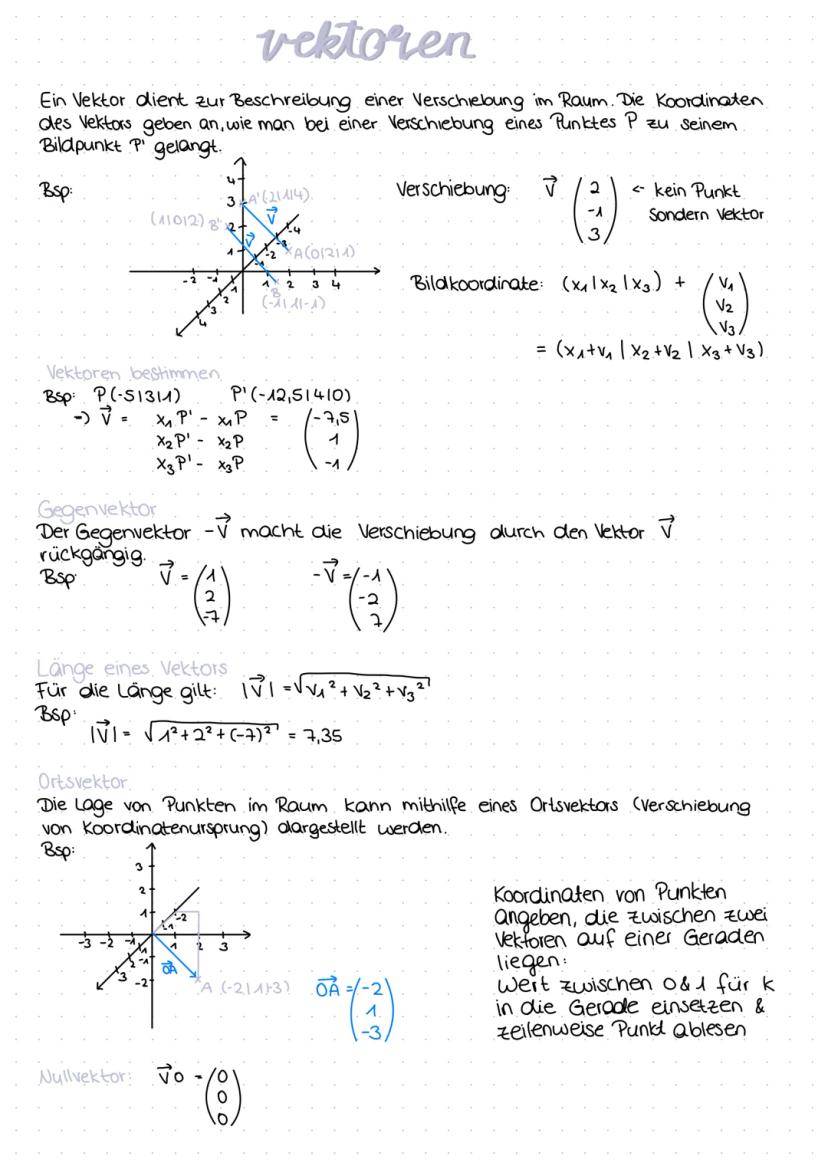 vektoren
Ein Vektor dient zur Beschreibung einer Verschiebung im Raum. Die Koordinaten
des Vektors geben an, wie man bei einer Verschiebung eines Punktes P zu seinem
Bildpunkt P' gelangt.
Bsp:
4
3 A'(2|1|4)
(1|0|2) B' 2 V⃗ -4
1 V⃗ -3
-2 A(0|2|1)
-1
-2 -1 1 2 3 4
1 B
2 (-1|1|-1)
3
4
Verschiebung: V⃗ (2 <- kein Punkt
-1 sondern Vektor
3)
Bildkoordinate: (x₁|x₂|x₃) + (V₁
V₂
V₃)
= (x₁+v₁ | x₂+v₂ | x₃+v₃)
Vektoren bestimmen
Bsp: P(-5|3|1) P'(-12,5|4|0)
-> V⃗ = x₁P' - x₁P = (-7,5
x₂P' - x₂P 1
x₃P' - x₃P -1)
Gegenvektor
Der Gegenvektor -V⃗ macht die Verschiebung durch den Vektor V⃗
rückgängig.
Bsp: V⃗ = (1 -V⃗ = (-1
2 -2
-7) 7)
Länge eines Vektors
Für die Länge gilt: |V⃗| = √V₁² + V₂² + V₃²
Bsp:
|V⃗| = √1² + 2² + (-7)² = 7,35
Ortsvektor
Die Lage von Punkten im Raum kann mithilfe eines Ortsvektors (Verschiebung
von Koordinatenursprung) dargestellt werden.
Bsp:
3
2
1 -2
-1
-3 -2 -1 1 2 3
1 -1
2 OA⃗
3 -2
A (-2|1|-3) OA⃗ = (-2
1
-3)
Koordinaten von Punkten
angeben, die zwischen zwei
Vektoren auf einer Geraden
liegen:
Wert zwischen 0 & 1 für k
in die Gerade einsetzen &
zeilenweise Punkt ablesen
Nullvektor: V⃗0 = (0
0
0)